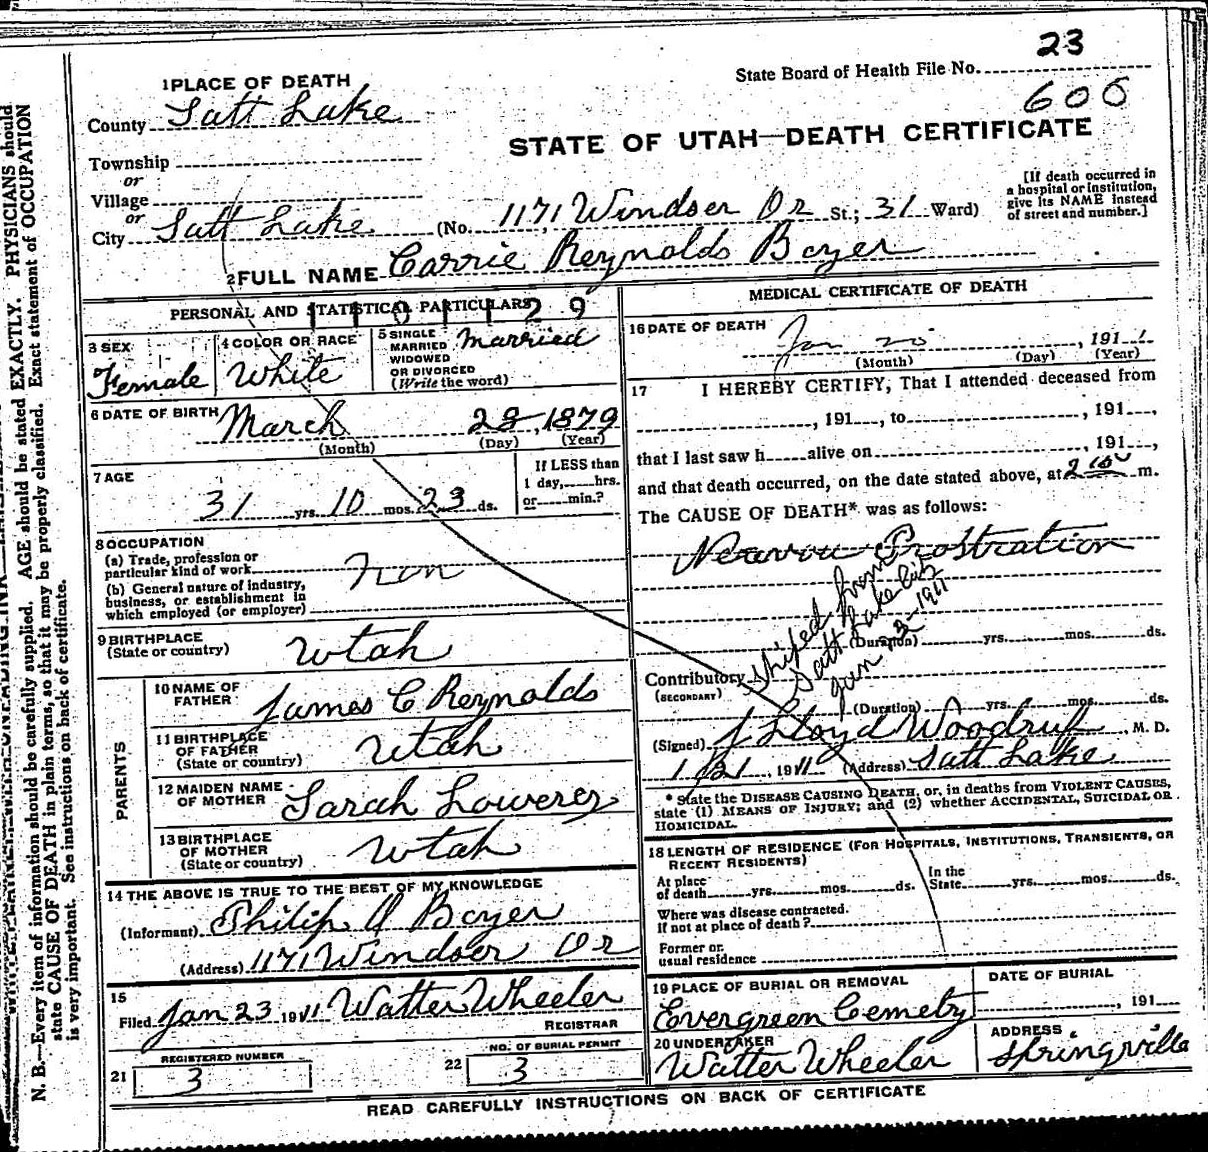 23
State Board of Health File No.
606
1 PLACE OF DEATH
County Salt Lake
STATE OF UTAH—DEATH CERTIFICATE
Township
or
Village
or
City Salt Lake (No. 1171 Windser Dr St.; 31 Ward)
[If death occurred in
a hospital or institution,
give its NAME instead
of street and number.]
2 FULL NAME Carrie Reynolds Boyer
PERSONAL AND STATISTICAL PARTICULARS
1101129
3 SEX
Female
4 COLOR OR RACE
White
5 SINGLE
MARRIED
WIDOWED
OR DIVORCED
(Write the word)
Married
6 DATE OF BIRTH March 28, 1879
(Month) (Day) (Year)
7 AGE
31 yrs. 10 mos. 23 ds.
If LESS than
1 day, hrs.
or min.?
8 OCCUPATION
(a) Trade, profession or
particular kind of work non
(b) General nature of industry,
business, or establishment in
which employed (or employer)
9 BIRTHPLACE
(State or country) Utah
PARENTS
10 NAME OF
FATHER James C Reynolds
11 BIRTHPLACE
OF FATHER
(State or country) Utah
12 MAIDEN NAME
OF MOTHER Sarah
13 BIRTHPLACE
OF MOTHER
(State or country) Utah
14 THE ABOVE IS TRUE TO THE BEST OF MY KNOWLEDGE
(Informant) Philip A Boyer
(Address) 1171 Windser Dr
15
Filed Jan 23 1911 Walter Wheeler
REGISTRAR
21 REGISTERED NUMBER
3
22 NO. OF BURIAL PERMIT
3
MEDICAL CERTIFICATE OF DEATH
16 DATE OF DEATH
Jan 20, 1911
(Month) (Day) (Year)
17 I HEREBY CERTIFY, That I attended deceased from
, 191 , to , 191 ,
that I last saw h alive on , 191 ,
and that death occurred, on the date stated above, at 2 m.
The CAUSE OF DEATH* was as follows:
Nervou Prostration
Shiped from
Salt Lake City
Jan 3-1911
(Duration) yrs. mos. ds.
Contributory
(SECONDARY)
(Duration) yrs. mos. ds.
(Signed) J Lloyd Woodruf, M. D.
1/21, 1911 (Address) Salt Lake
* State the DISEASE CAUSING DEATH, or, in deaths from VIOLENT CAUSES,
state (1) MEANS OF INJURY; and (2) whether ACCIDENTAL, SUICIDAL OR
HOMICIDAL.
18 LENGTH OF RESIDENCE (FOR HOSPITALS, INSTITUTIONS, TRANSIENTS, OR
RECENT RESIDENTS)
At place
of death yrs. mos. ds.
In the
State yrs. mos. ds.
Where was disease contracted.
if not at place of death?
Former or
usual residence
19 PLACE OF BURIAL OR REMOVAL
Evergreen Cemety
DATE OF BURIAL
, 191
20 UNDERTAKER
Walter Wheeler
ADDRESS
Springville
READ CAREFULLY INSTRUCTIONS ON BACK OF CERTIFICATE
N. B.—Every item of information should be carefully supplied. AGE should be stated EXACTLY. PHYSICIANS should
state CAUSE OF DEATH in plain terms, so that it may be properly classified. Exact statement of OCCUPATION
is very important. See instructions on back of certificate.